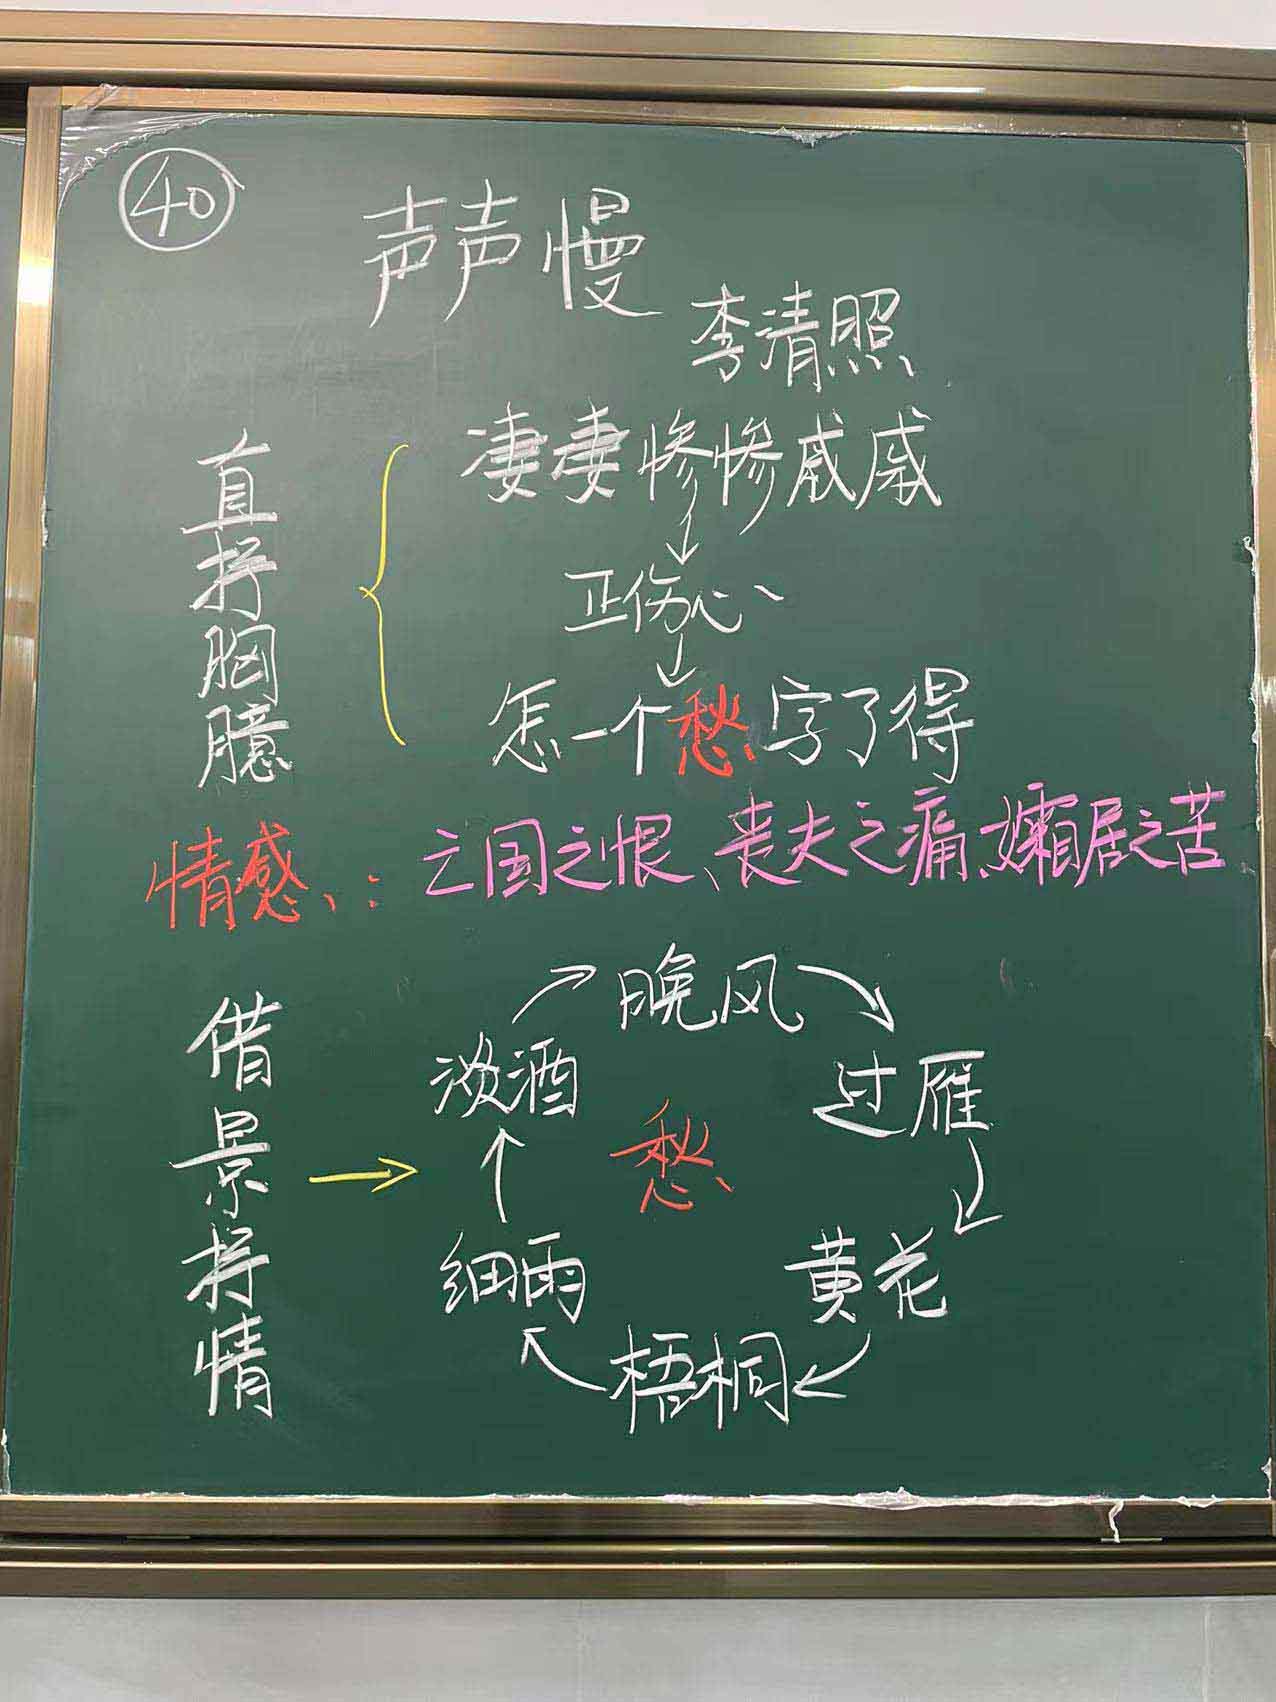 40
声声慢
李清照
直抒胸臆
凄凄惨惨戚戚
正伤心
怎一个愁字了得
情感:亡国之恨、丧夫之痛、孀居之苦
借景抒情
晚风
淡酒
过雁
愁
细雨
黄花
梧桐